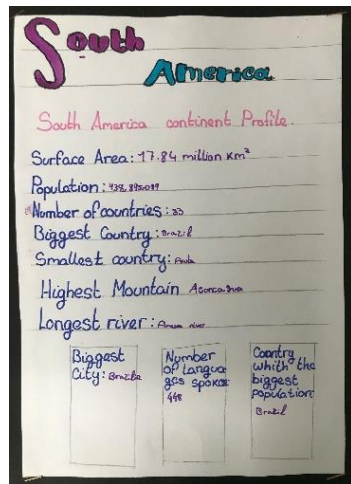 South
America
South America continent Profile.
Surface Area: 17.84 million Km²
Population:
Number of countries: 33
Biggest Country: Brazil
Smallest country:
Highest Mountain Aconcagua
Longest river: river
Biggest
City: Brazilia
Number
of Langua
ges spoken
448
Country
whith the
biggest
population:
Brazil